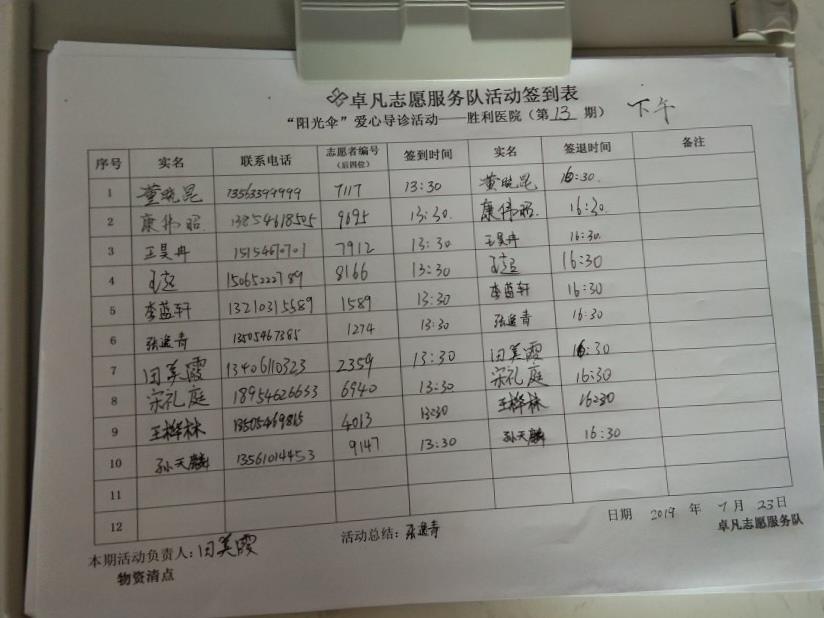 卓凡志愿服务队活动签到表
“阳光伞”爱心导诊活动——胜利医院（第 13 期） 下午
序号 实名 联系电话 志愿者编号（后四位） 签到时间 实名 签退时间 备注
1 董晓昆 13563399999 7117 13:30 董晓昆 16:30.
2 康伟昭. 13854618505 9695 13:30. 康伟昭. 16:30.
3 王昊冉 15154670701 7912 13:30 王昊冉 16:30.
4 15065222789 8166 13:30 16:30
5 李蓝轩 13210315589 1589 13:30 李蓝轩 16:30
6 张逸青 13505467385 1274 13:30 张逸青 16:30
7 田美霞 13406110323 2359 13:30 田美霞 16:30
8 宋礼庭 18954626653 6940 13:30 宋礼庭 16:30
9 王桦林 13505469815 4013 13:30 王桦林 16:30
10 孙天麟 13561014453 9147 13:30 孙天麟 16:30
11
12
日期 2019 年 7 月 23日
本期活动负责人：田美霞 活动总结：张逸青 卓凡志愿服务队
物资清点